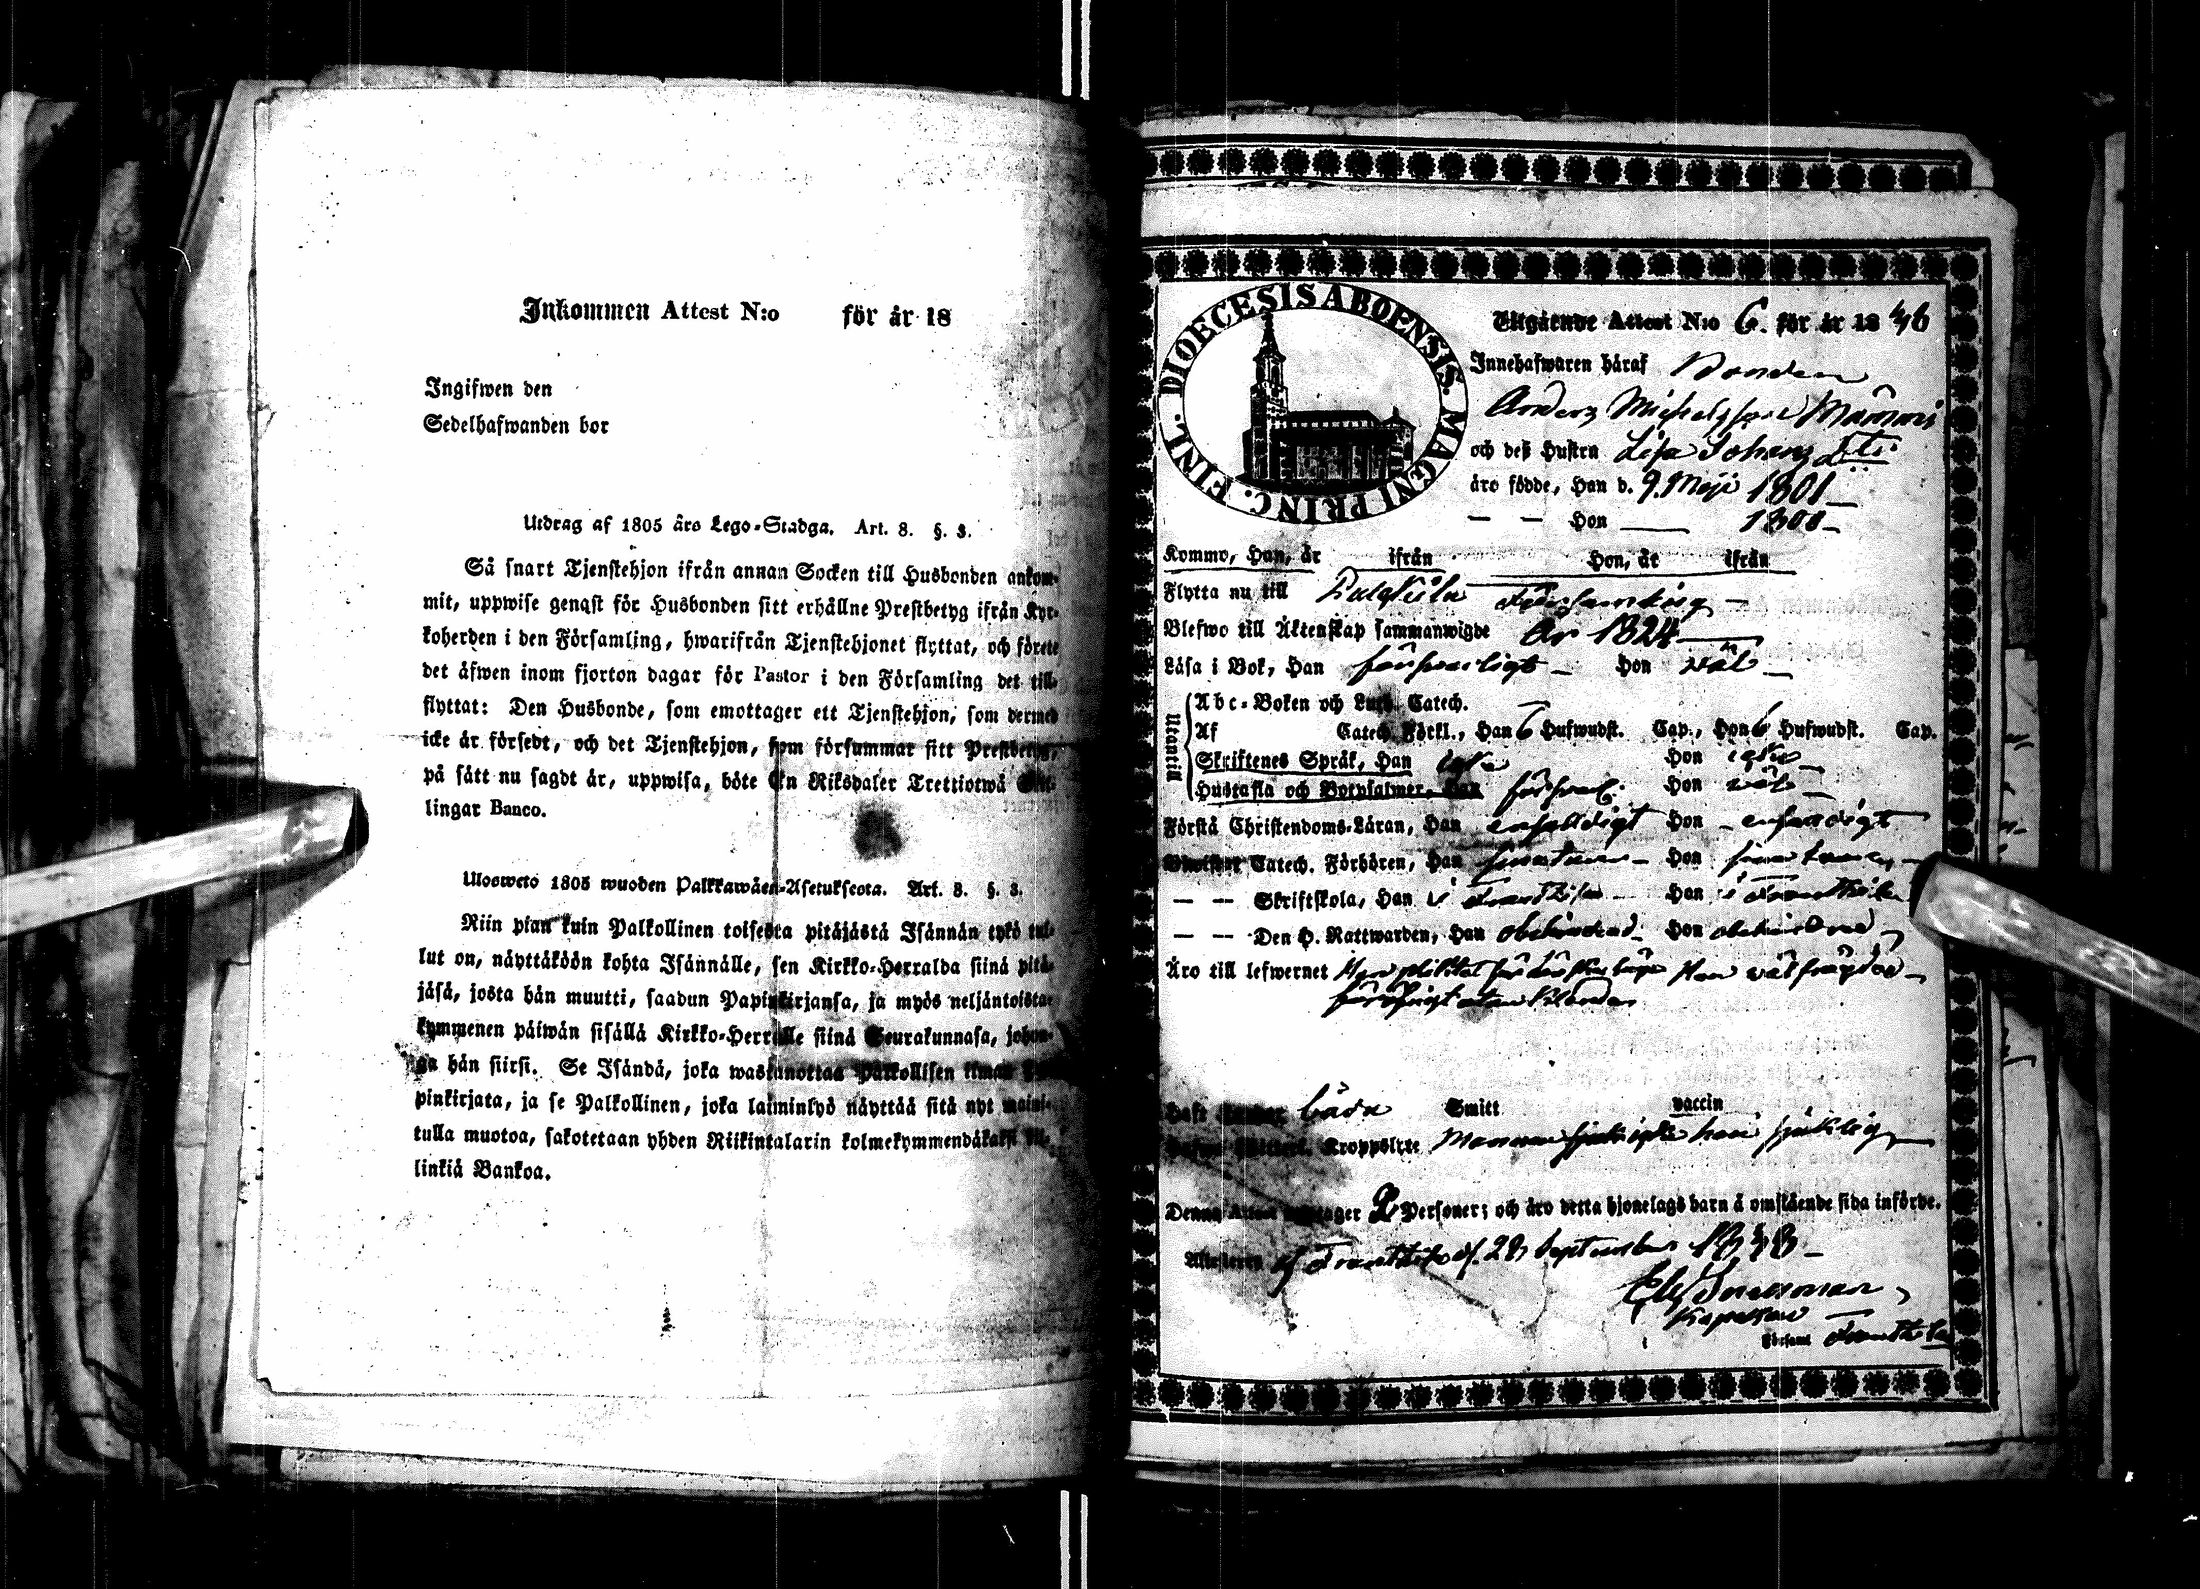 Inkommen Attest N:o för år 18
Ingifwen den
Sedelhafwanden bor
Utdrag af 1805 års Lego-Stadga. Art. 8. §. 3.
Så snart Tjenstehjon ifrån annan Socken till Husbonden ankom-
mit, uppwise genast för Husbonden sitt erhållne Prestbetyg ifrån Kyr-
koherden i den Församling, hwarifrån Tjenstehjonet flyttat, och förete
det äfwen inom fjorton dagar för Pastor i den Församling det till-
flyttat: Den Husbonde, som emottager ett Tjenstehjon, som dermed
icke är försedt, och det Tjenstehjon, som försummar sitt Prestbetyg,
på sätt nu sagdt är, uppwisa, böte En Riksdaler Trettiotwå Skil-
lingar Banco.
Ulosweto 1805 wuoden Palkkawäen-Asetuksesta. Art. 8. §. 3.
Niin pian kuin Palkollinen toisesta pitäjästä Isännän tykö tul-
lut on, näyttäköön kohta Isännälle, sen Kirkko-Herralda siinä pitä-
jäsä, josta hän muutti, saadun Papinkirjansa, ja myös neljäntoista-
kymmenen päiwän sisällä Kirkko-Herralle siinä Seurakunnasa, johon-
ga hän siirsi. Se Isändä, joka wastanottaa Palkollisen ilman Pa-
pinkirjata, ja se Palkollinen, joka laiminlyö näyttää sitä nyt maini-
tulla muotoa, sakotetaan yhden Riikintalarin kolmekymmendäkaksi kil-
linkiä Bankoa.
DIOECESIS ABOENSIS. MAGNI PRINC. FINL.
Utgående Attest N:o 6. för år 1846
Innehafwaren häraf Bonden
Anders Michelsson Mämmi
och deß Hustru Lisa Johans Dtr
äro födde, Han d. 9. Maji 1801
— — Hon 1801
Kommo, Han, år ifrån Hon, år ifrån
Flytta nu till Pulkkila Församling
Blefwo till Äktenskap sammanwigde år 1824
Läsa i Bok, Han försvarligt Hon väl
Utantill
Abc-Boken och Luth. Catech.
Af Catech. Förkl., Han 6 Hufwudst. Cap., Hon 6 Hufwudst. Cap.
Skriftenes Språk, Han icke Hon icke
Hustafla och Botpsalmer, Han försvarl. Hon väl
Förstå Christendoms-Läran, Han enfaldigt Hon enfaldigt
Catech. Förhören, Han Hon
— — Skriftskola, Han i Frantsila Hon i Frantsila
— — Den H. Nattwarden, Han obehindrad Hon obehindrad
Äro till lefwernet Hon välfrägdad
Haft båda Smitt vaccin
Kroppslyte Mannen
Denna Attest emottager 2 Personer; och äro detta hjonelags barn å omstående sida införde.
Attesteras af Frantsila d. 28 September 1848
El. Snellman
Kapellan
Församl. Frantsila